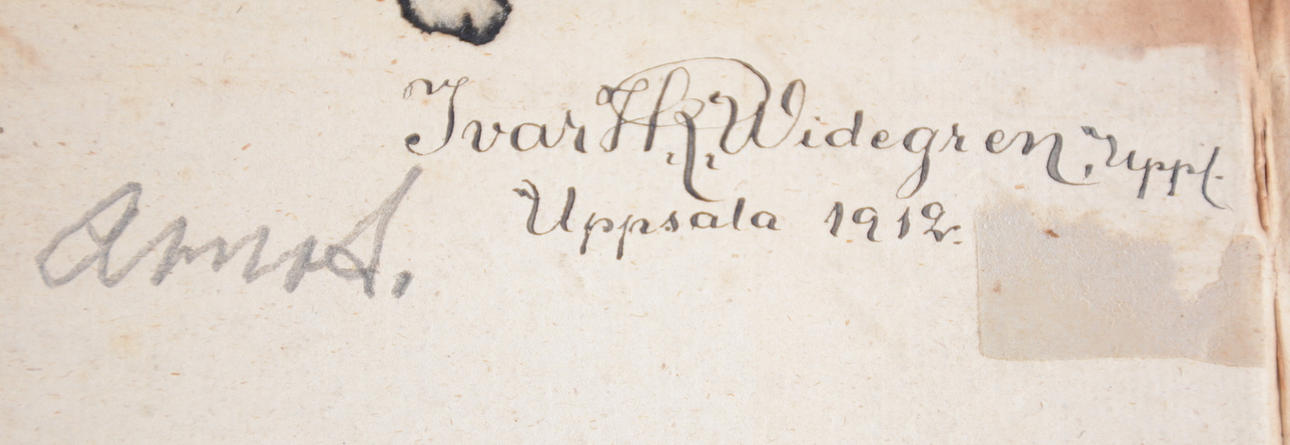 Ivar Hr. Widegren, Uppl.
Uppsala 1912.
Arne S.